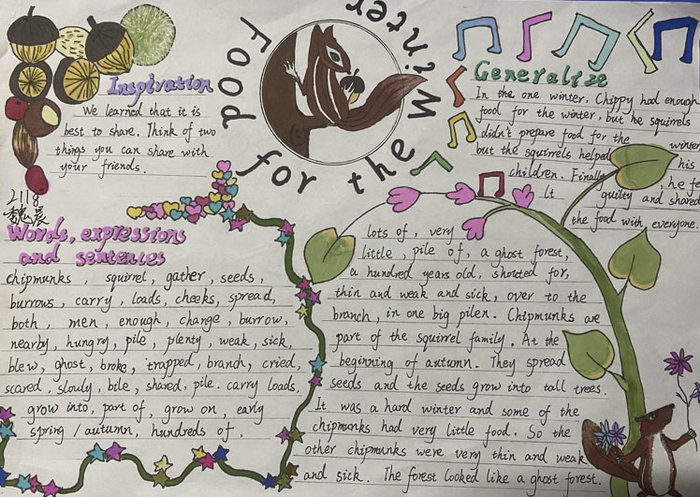 Food for the Winter
Inspiration
We learned that it is
best to share. Think of two
things you can share with
your friends.
2118
魏晨
Generalize
In the one winter. Chippy had enough
food for the winter, but he squirrels
didn't prepare food for the winter
but the squirrels helped his
children. Finally, he fo
Lt guilty and shared
the food with everyone.
Words, expressions
and sentences
chipmunks, squirrel, gather, seeds,
burrows, carry, loads, cheeks, spread,
both, men, enough, change, burrow,
nearby, hungry, pile, plenty, weak, sick,
blew, ghost, broke, trapped, branch, cried,
scared, slowly, bile, shared, pile. carry loads,
grow into, part of, grow on, early
spring / autumn, hundreds of,
lots of, very
little, pile of, a ghost forest,
a hundred years old, shouted for,
thin and weak and sick, over to the
branch, in one big pilen. Chipmunks are
part of the squirrel family. At the
beginning of autumn. They spread
seeds and the seeds grow into tall trees.
It was a hard winter and some of the
chipmunks had very little food. So the
other chipmunks were very thin and weak
and sick. The forest looked like a ghost forest.